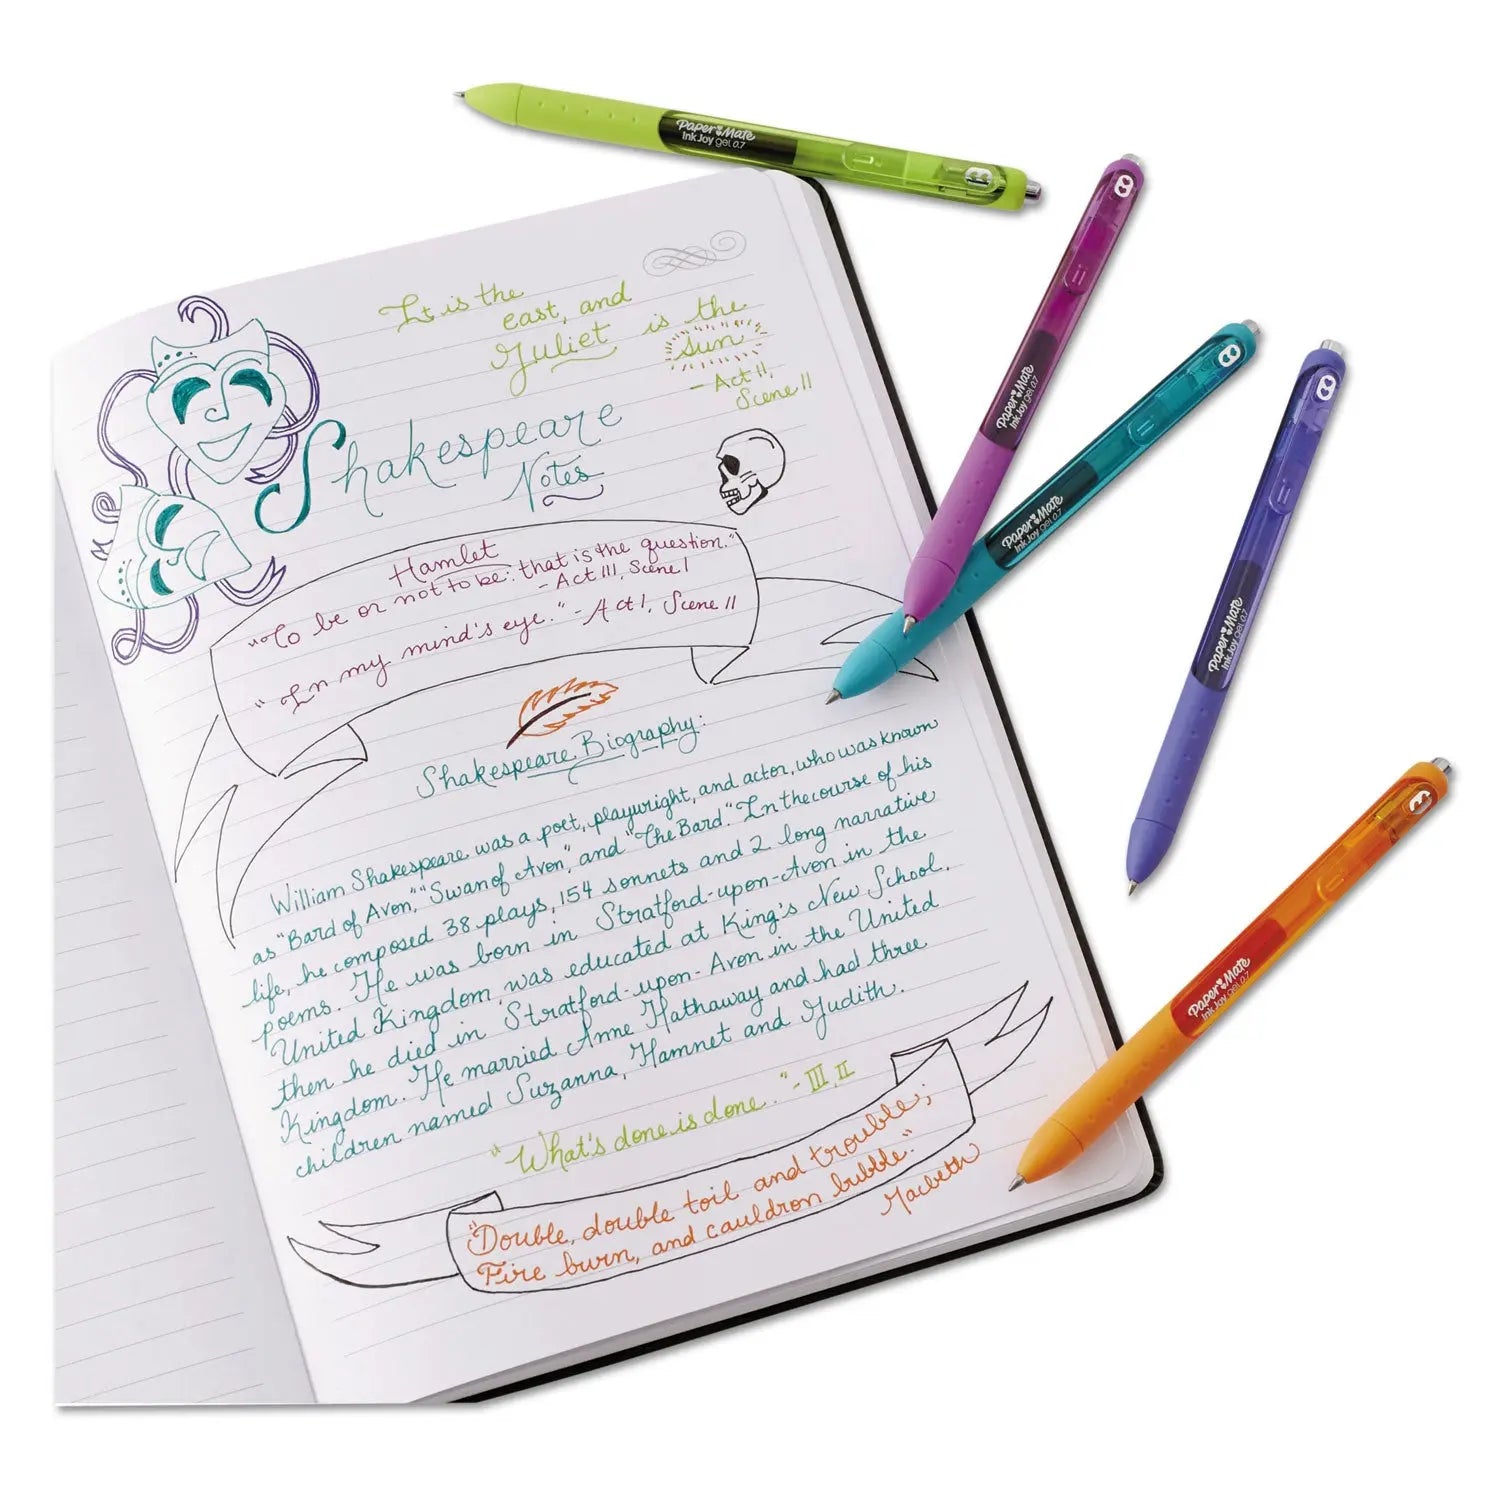 Paper Mate
InkJoy gel 0.7
Paper Mate
InkJoy gel 0.7
Paper Mate
InkJoy gel 0.7
Paper Mate
InkJoy gel 0.7
Paper Mate
InkJoy gel 0.7
It is the
east, and
Juliet is the
sun
- Act II,
Scene II
Shakespeare
Notes
Hamlet
"To be or not to be: that is the question."
- Act III, Scene I
"In my mind's eye." - Act I, Scene II
Shakespeare Biography:
William Shakespeare was a poet, playwright, and actor, who was known
as "Bard of Avon," "Swan of Avon," and "The Bard". In the course of his
life, he composed 38 plays, 154 sonnets and 2 long narrative
poems. He was born in Stratford-upon-Avon in the
United Kingdom, was educated at King's New School,
then he died in Stratford-upon-Avon in the United
Kingdom. He married Anne Hathaway and had three
children named Suzanna, Hamnet and Judith.
"What's done is done." - III, II
"Double, double toil and trouble;
Fire burn, and cauldron bubble."
Macbeth